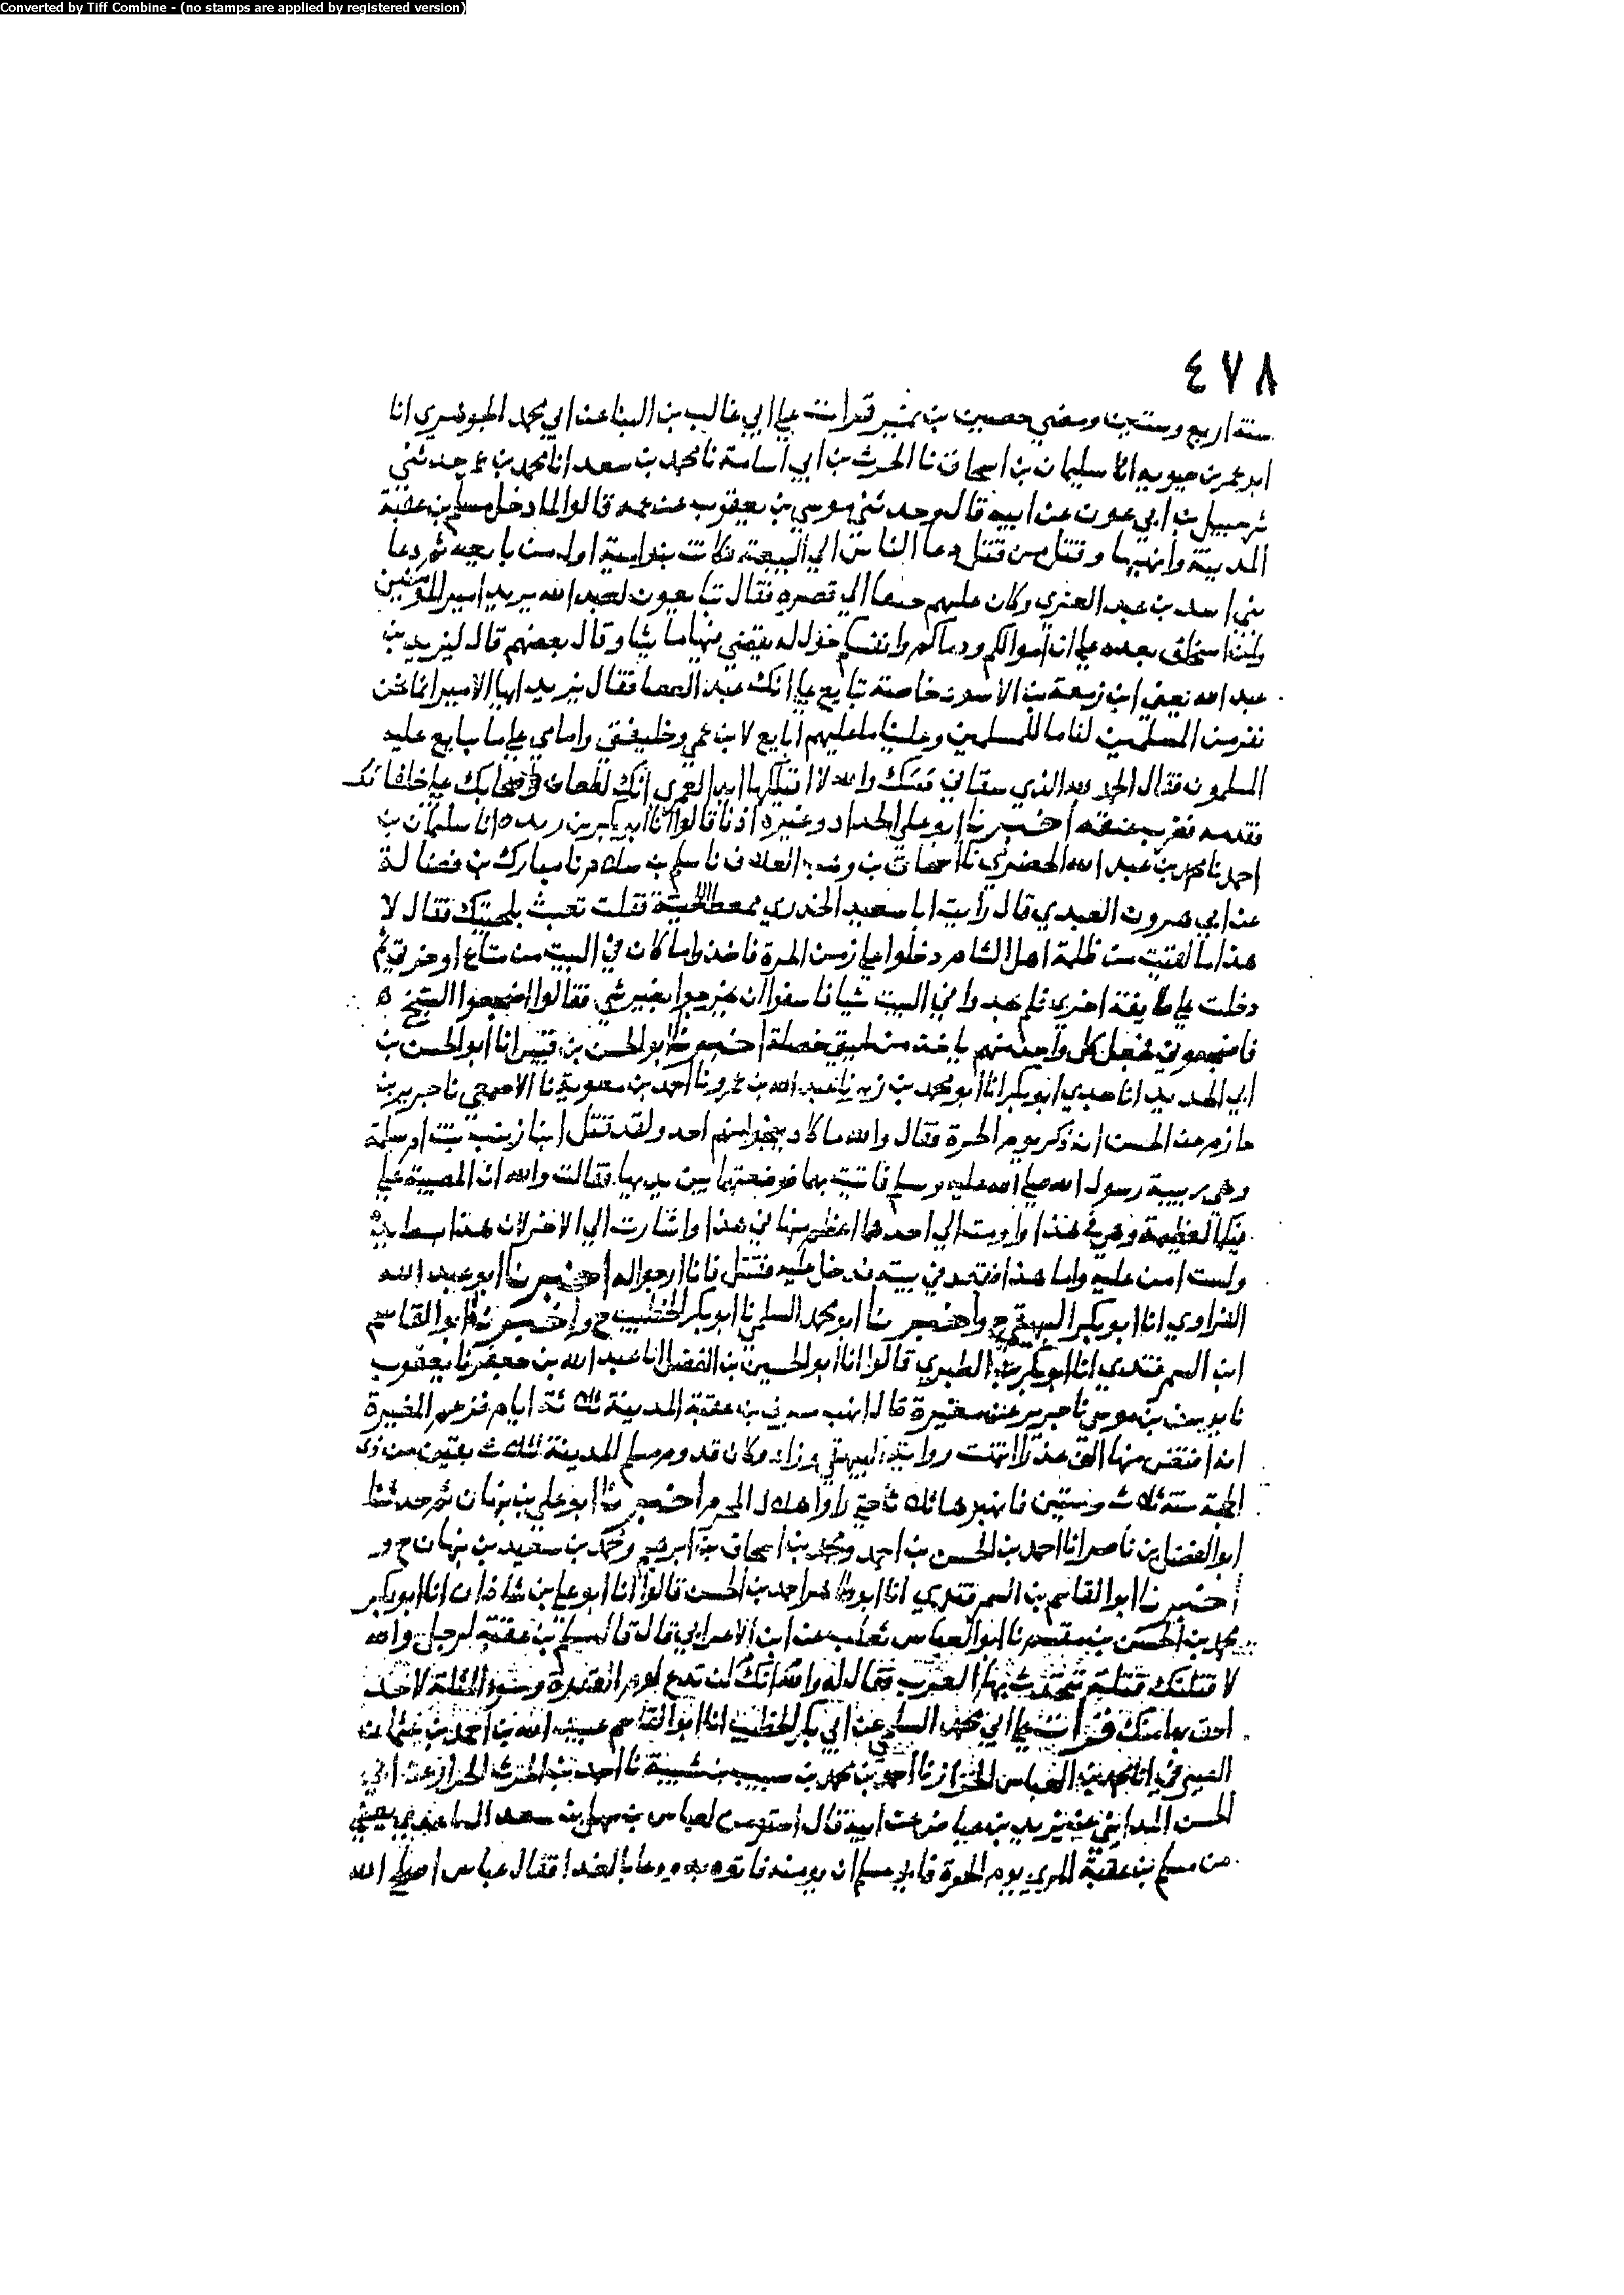 Converted by Tiff Combine - (no stamps are applied by registered version)
٤٧٨
سنة اربع وستين ومضي حصين بن نمير قرات علي ابي غالب بن البنا عن ابي محمد الجوهري انا
ابو عمر بن حيويه انا سليمان بن اسحاق نا الحرث بن ابي اسامة نا محمد بن سعد انا محمد بن عمر حدثني
شرحبيل بن ابي عون عن ابيه قال وحدثني موسي بن يعقوب عن عمه قالوا لما دخل مسلم بن عقبة
المدينة وانهبها وقتل من قتل ودعا الناس الي البيعة فكانت بنو امية اول من بايعه ثم دعا
بني اسد بن عبد العزي وكان عليهم حنقا الي قصره فقال تبايعون لعبد الله يزيد امير المومنين
ولمن استخلف بعده علي ان اموالكم ودماكم وانفسكم خول له يقضي فيها ما شا وقال بعضهم قال ليزيد بن
عبد الله يعني ابن زمعة بن الاسود خاصة تبايع علي انك عبد العصا فقال يزيد ايها الامير انما نحن
نفر من المسلمين لنا ما للمسلمين وعلينا ما عليهم ابايع لابن عمي وخليفتي وامامي علي ما يبايع عليه
المسلمون فقال الحمد لله الذي سقاني دمك والله لا اقيلكها ابدا لعمري انك لطعان واصحابك علي خلفائك
فقدمه فضرب عنقه اخبرنا ابو علي الحداد وغيره اذنا قالوا انا ابو بكر بن ريده انا سليمان بن
احمد نا محمد بن عبد الله الحضرمي نا اسحاق بن وهب العلاف نا سلم بن سلام نا مبارك بن فضالة
عن ابي هرون العبدي قال رايت ابا سعيد الخدري ممعط اللحية فقلت تعبث بلحيتك فقال لا
هذا ما لقيت من ظلمة اهل الشام دخلوا علي زمن الحرة فاخذوا ما كان في البيت من متاع او خرثي ثم
دخلت علي طايفة اخري فلم يجدوا في البيت شيا فاسفوا ان يخرجوا بغير شي فقالوا اضجعوا الشيخ ٥
فاضجعوني فجعل كل واحد منهم ياخذ من لحيتي خصلة اخبرنا ابو الحسن بن قبيس انا ابو الحسن بن
ابي الحديد انا جدي ابو بكر انا ابو محمد بن زبر نا عبد الله بن عمرو نا احمد بن معوية نا الاصمعي نا جرير بن
حازم عن الحسن انه ذكر يوم الحرة فقال والله ما كاد ينجو منهم احد ولقد قتل ابنا زينب بنت ام سلمة
وهي ربيبة رسول الله صلي الله عليه وسلم فاتيت بهما فوضعتهما بين يديها فقالت والله ان المصيبة علي
فيكما لعظيمة وهي في هذا واومت الي احدهما اعظم منها في هذا واشارت الي الاخر لان هذا بسط يده
ولست امن عليه واما هذا فقعد في بيته فدخل عليه فقتل فانا ارجو له اخبرنا ابو عبد الله
الفراوي انا ابو بكر البيهقي ح واخبرنا ابو محمد السلمي نا ابو بكر الخطيب ح واخبرنا ابو القاسم
ابن السمرقندي انا ابو بكر بن الطبري قالوا انا ابو الحسين بن الفضل انا عبد الله بن جعفر نا يعقوب
نا يوسف بن موسي نا جرير عن مغيرة قال انهب مسرف بن عقبة المدينة ثلاثة ايام فزعم المغيرة
انه افتض منها الف عذرا انتهت رواية البيهقي وزاد وكان قدوم مسلم المدينة لثلاث بقين من ذي
الحجة سنة ثلاث وستين فانهبوها ثلاثا حتي راوا هلال المحرم اخبرنا ابو علي بن نبهان ثم حدثنا
ابو الفضل بن ناصر انا احمد بن الحسن بن احمد ومحمد بن اسحاق بن ابرهيم ومحمد بن سعيد بن نبهان ح و
اخبرنا ابو القاسم بن السمرقندي انا ابو طاهر احمد بن الحسن قالوا انا ابو علي بن شاذان انا ابو بكر
محمد بن الحسن بن مقسم نا ابو العباس ثعلب عن ابن الاعرابي قال قال مسلم بن عقبة لرجل والله
لاقتلنك قتلة تتحدث بها العرب فقال له والله انك لن تدع لوم القدرة وسوء المثلة لاحد
احق بها منك قرات علي ابي محمد السلمي عن ابي بكر الخطيب انا ابو القاسم عبيد الله بن احمد بن عثمان
الصيرفي انا محمد بن العباس الخزاز نا احمد بن محمد بن شيبة نا احمد بن الحرث الخزاز عن ابي
الحسن المدائني عن يزيد بن عياض عن ابيه قال استومن لعباس بن سهل بن سعد الساعدي يعني
من مسلم بن عقبة المري يوم الحرة فابي مسلم ان يومنه فاتوه به ودعا بالغدا فقال عباس اصلح الله